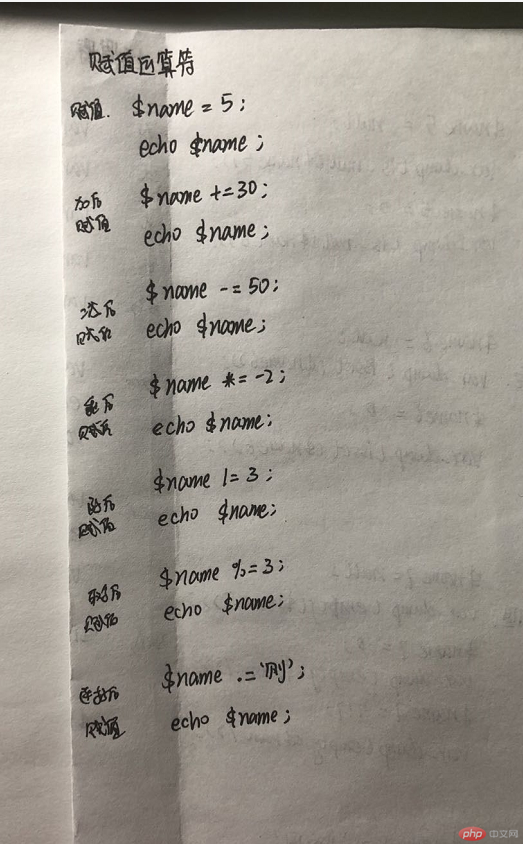 赋值运算符
赋值. $name = 5;
echo $name;
加后
赋值
$name += 30;
echo $name;
减后
赋值
$name -= 50;
echo $name;
乘后
赋值
$name *= -2;
echo $name;
除后
赋值
$name /= 3;
echo $name;
取余后
赋值
$name %= 3;
echo $name;
连接后
赋值
$name .=
echo $name;
php 中文网